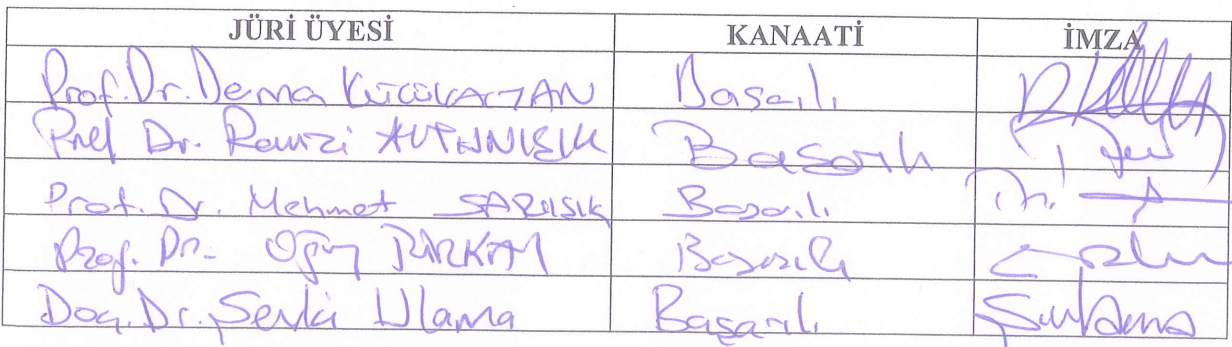 JÜRİ ÜYESİ KANAATİ İMZA
Prof. Dr. Derman KÜÇÜKALTAN Başarılı
Prof Dr. Remzi ALTUNIŞIK Başarılı
Prof. Dr. Mehmet SARIIŞIK Başarılı
Prof. Dr. Oğuz TÜRKAY Başarılı
Doç. Dr. Şevki Ulama Başarılı